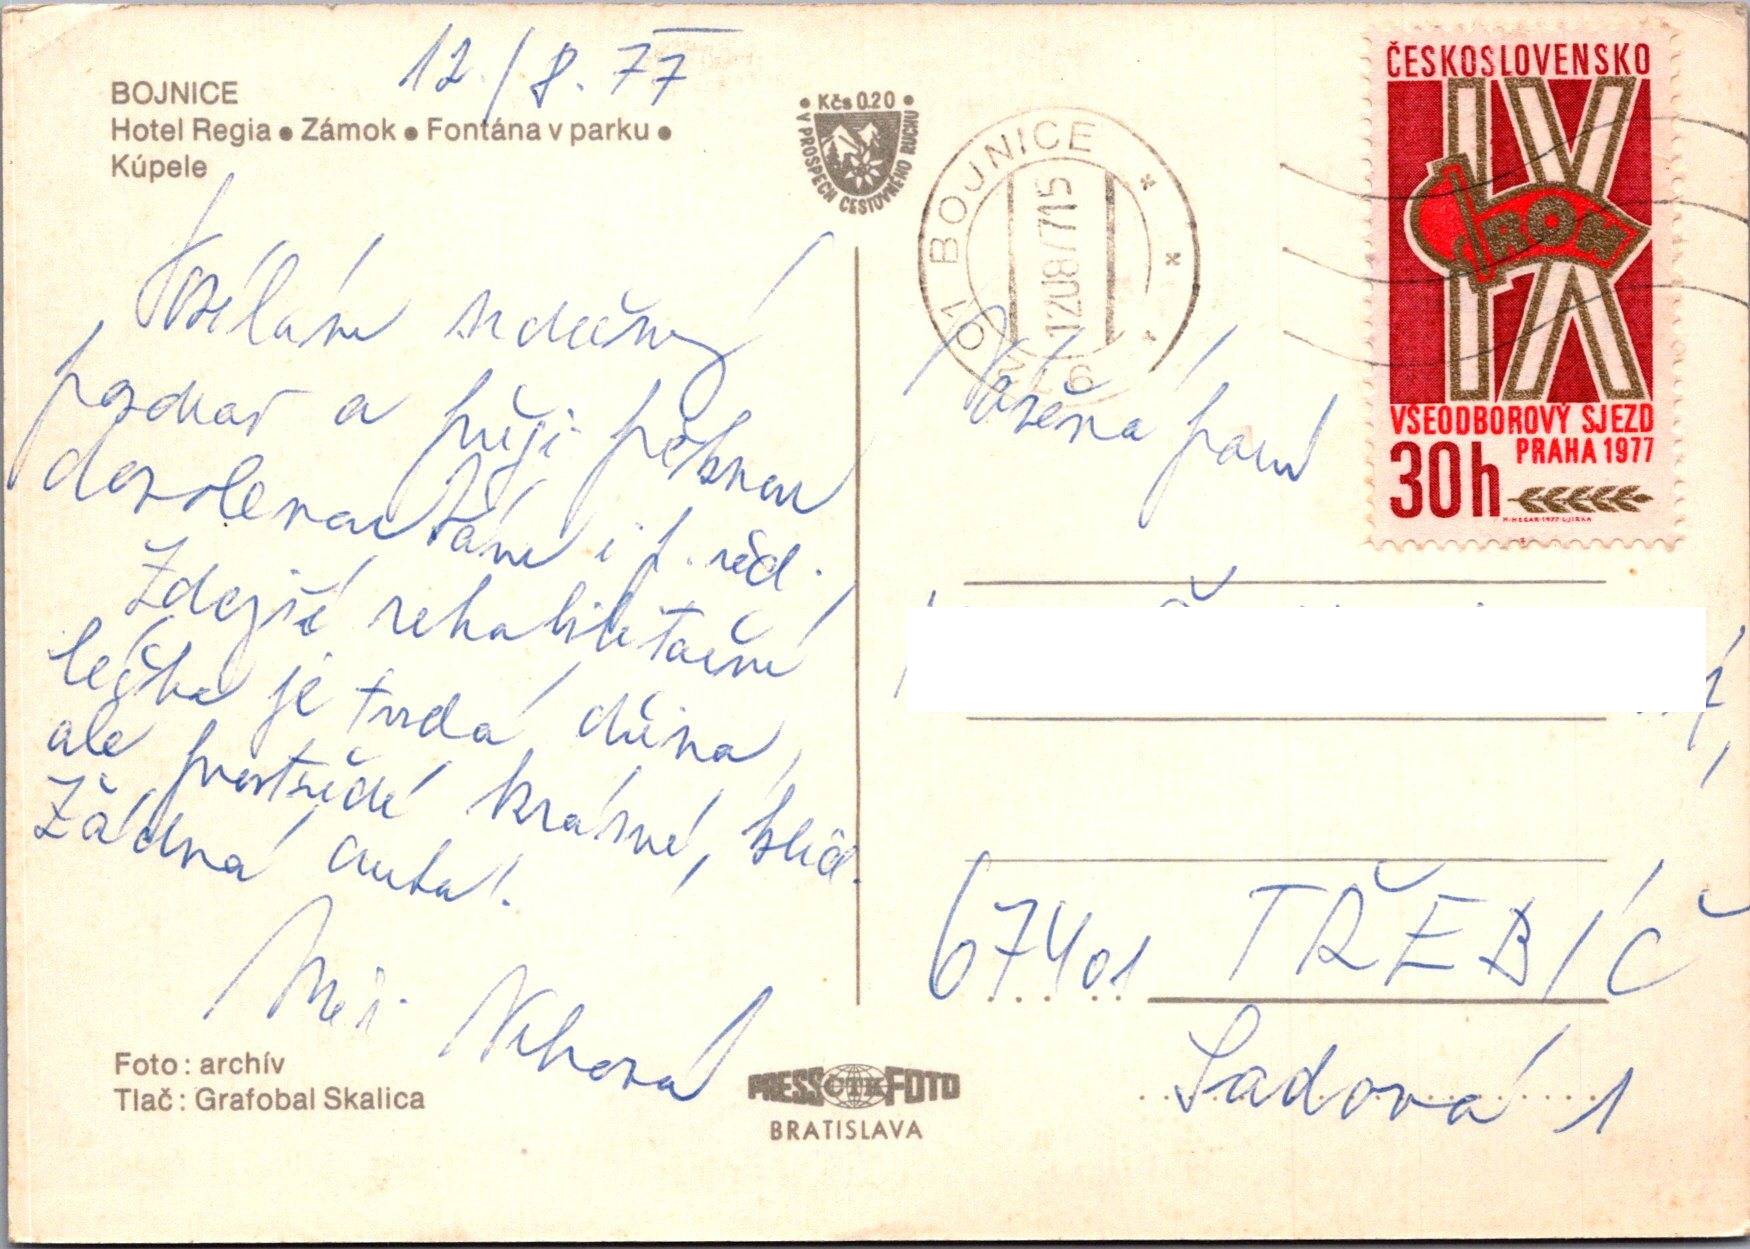 12./8. 77
BOJNICE
Hotel Regia • Zámok • Fontána v parku •
Kúpele
• Kčs 0.20 •
V PROSPECH CESTOVNÉHO RUCHU
BOJNICE
ČESKOSLOVENSKO
IX
ROH
VŠEODBOROVÝ SJEZD
PRAHA 1977
30h
Posílám srdečný
pozdrav a přeji pěknou
dovolenou Vám i
Zdejší rehabilitační
léčba je tvrdá dřina,
ale prostředí krásné, klid.
Žádná auta!
Vážená paní
67401 TŘEBÍČ
Sadová 1
Foto: archív
Tlač: Grafobal Skalica
PRESS ČTK FOTO
BRATISLAVA